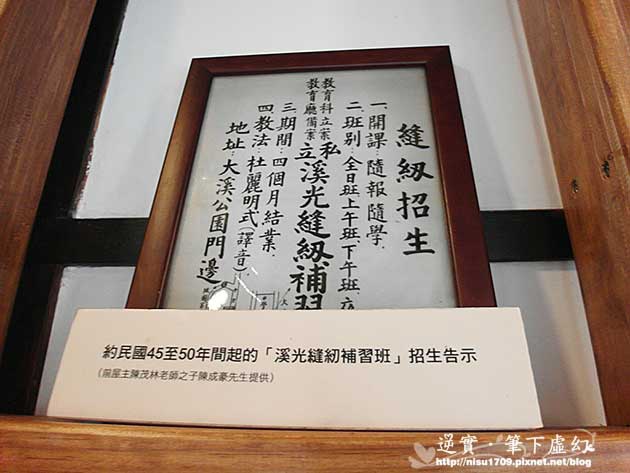 縫紉招生
一.開課:隨報隨學.
二.班別:全日班上午班下午班.夜
教育科立案
教育廳備案
私立溪光縫紉補習
三.期間:四個月結業.
四.教法:杜麗明式(譯音)
地址:大溪公園門邊
約民國45至50年間起的「溪光縫紉補習班」招生告示
(前屋主陳茂林老師之子陳成豪先生提供)
逆實‧筆下虛幻
http://nisu1709.pixnet.net/blog